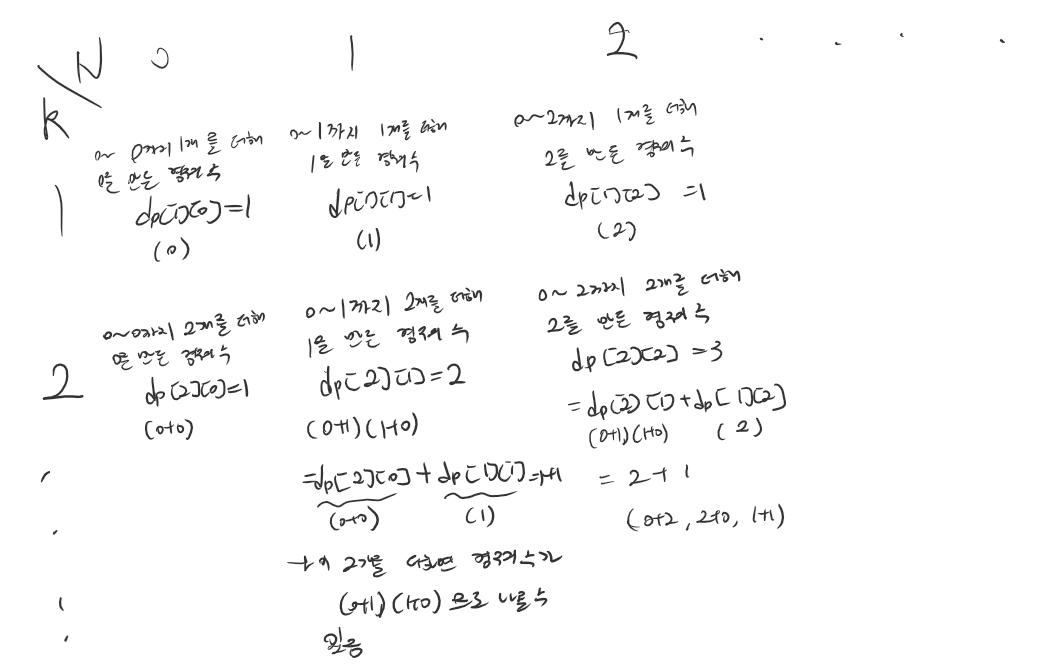 N 0 1 2 . . . .
K
0~0까지 1개를 더해
0을 만든 경우의 수
dp[1][0]=1
(0)
0~1까지 1개를 더해
1을 만든 경우의 수
dp[1][1]=1
(1)
0~2까지 1개를 더해
2를 만든 경우의 수
dp[1][2] =1
(2)
1
0~0까지 2개를 더해
0을 만든 경우의 수
dp[2][0]=1
(0+0)
0~1까지 2개를 더해
1을 만든 경우의 수
dp[2][1]=2
(0+1)(1+0)
=dp[2][0]+dp[1][1]=1+1
(0+0) (1)
이 2개를 더하면 경우의 수가
(0+1)(1+0) 으로 나올 수
있음
0~2까지 2개를 더해
2를 만든 경우의 수
dp[2][2]=3
=dp[2][1]+dp[1][2]
(0+1)(1+0) (2)
= 2+1
(0+2, 2+0, 1+1)
2